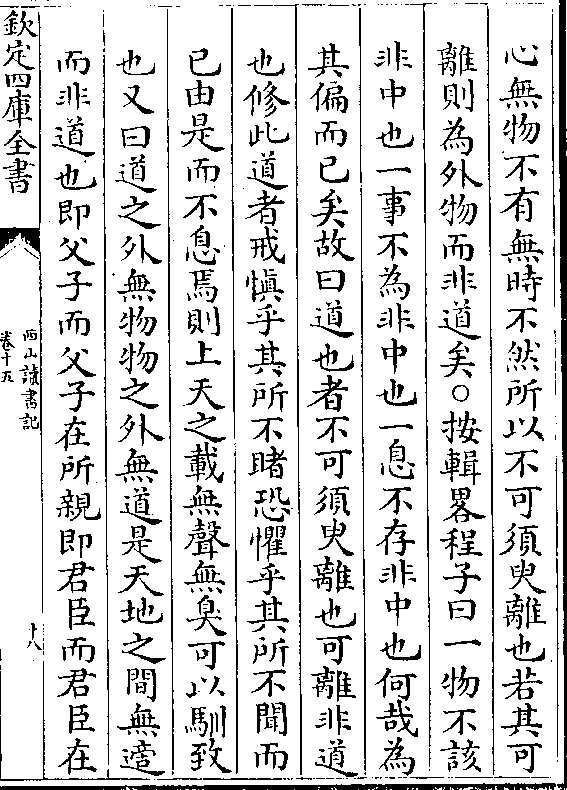 心無物不有無時不然所以不可須臾離也若其可
離則為外物而非道矣○按輯畧程子曰一物不該
非中也一事不為非中也一息不存非中也何哉為
其偏而已矣故曰道也者不可須臾離也可離非道
也修此道者戒慎乎其所不睹恐懼乎其所不聞而
已由是而不息焉則上天之載無聲無臭可以馴致
也又曰道之外無物物之外無道是天地之間無適
而非道也即父子而父子在所親即君臣而君臣在
欽定四庫全書
西山讀書記
卷十五
十八